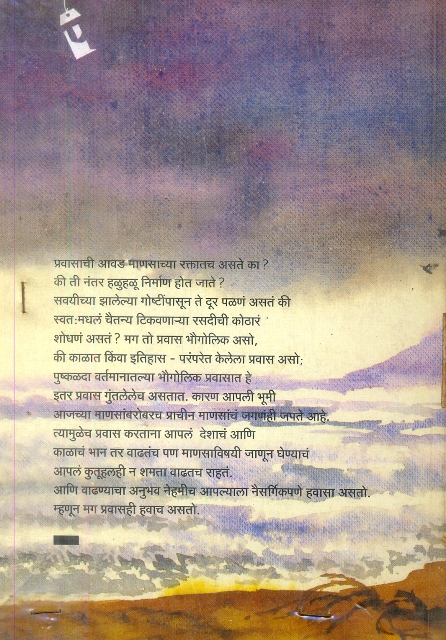 प्रवासाची आवड माणसाच्या रक्तातच असते का ?
की ती नंतर हळुहळू निर्माण होत जाते ?
सवयीच्या झालेल्या गोष्टींपासून ते दूर पळणं असतं की
स्वत:मधलं चैतन्य टिकवणाऱ्या रसदीची कोठारं
शोधणं असतं ? मग तो प्रवास भौगोलिक असो,
की काळात किंवा इतिहास - परंपरेत केलेला प्रवास असो;
पुष्कळदा वर्तमानातल्या भौगोलिक प्रवासात हे
इतर प्रवास गुंतलेलेच असतात. कारण आपली भूमी
आजच्या माणसांबरोबरच प्राचीन माणसांचं जगणंही जपते आहे.
त्यामुळेच प्रवास करताना आपलं देशाचं आणि
काळाचं भान तर वाढतंच पण माणसाविषयी जाणून घेण्याचं
आपलं कुतूहलही न शमता वाढतच राहतं.
आणि वाढण्याचा अनुभव नेहमीच आपल्याला नैसर्गिकपणे हवासा असतो.
म्हणून मग प्रवासही हवाच असतो.